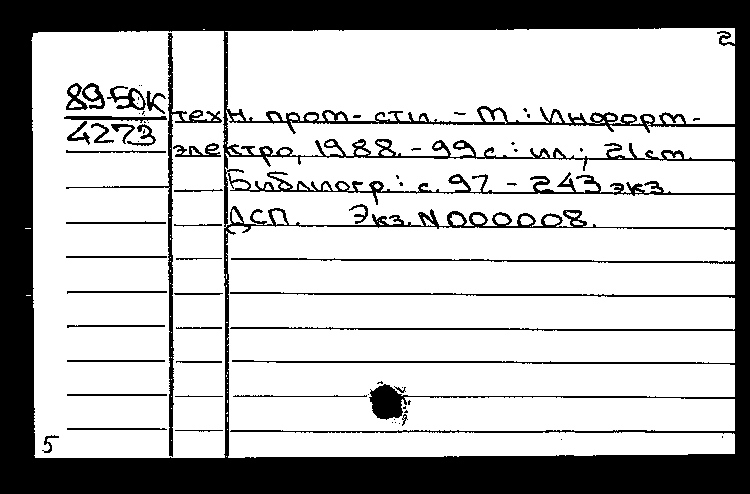 2
89-50К
4273
техн. пром-сти. - М.: Информ-
электро, 1988. - 99 с.: ил.; 21 см.
Библиогр.: с. 97. - 243 экз.
ДСП. Экз. N 000008.
5